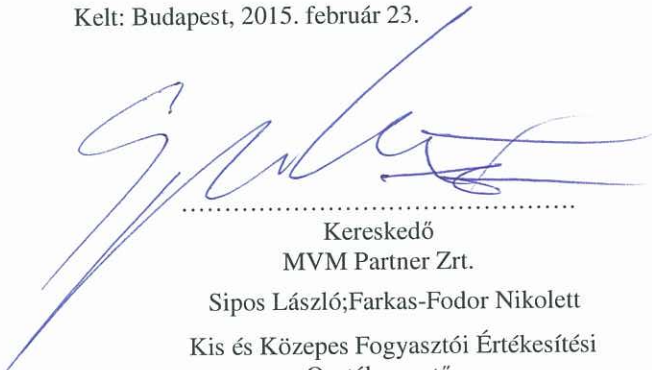 Kelt: Budapest, 2015. február 23.
..................................................
Kereskedő
MVM Partner Zrt.
Sipos László;Farkas-Fodor Nikolett
Kis és Közepes Fogyasztói Értékesítési